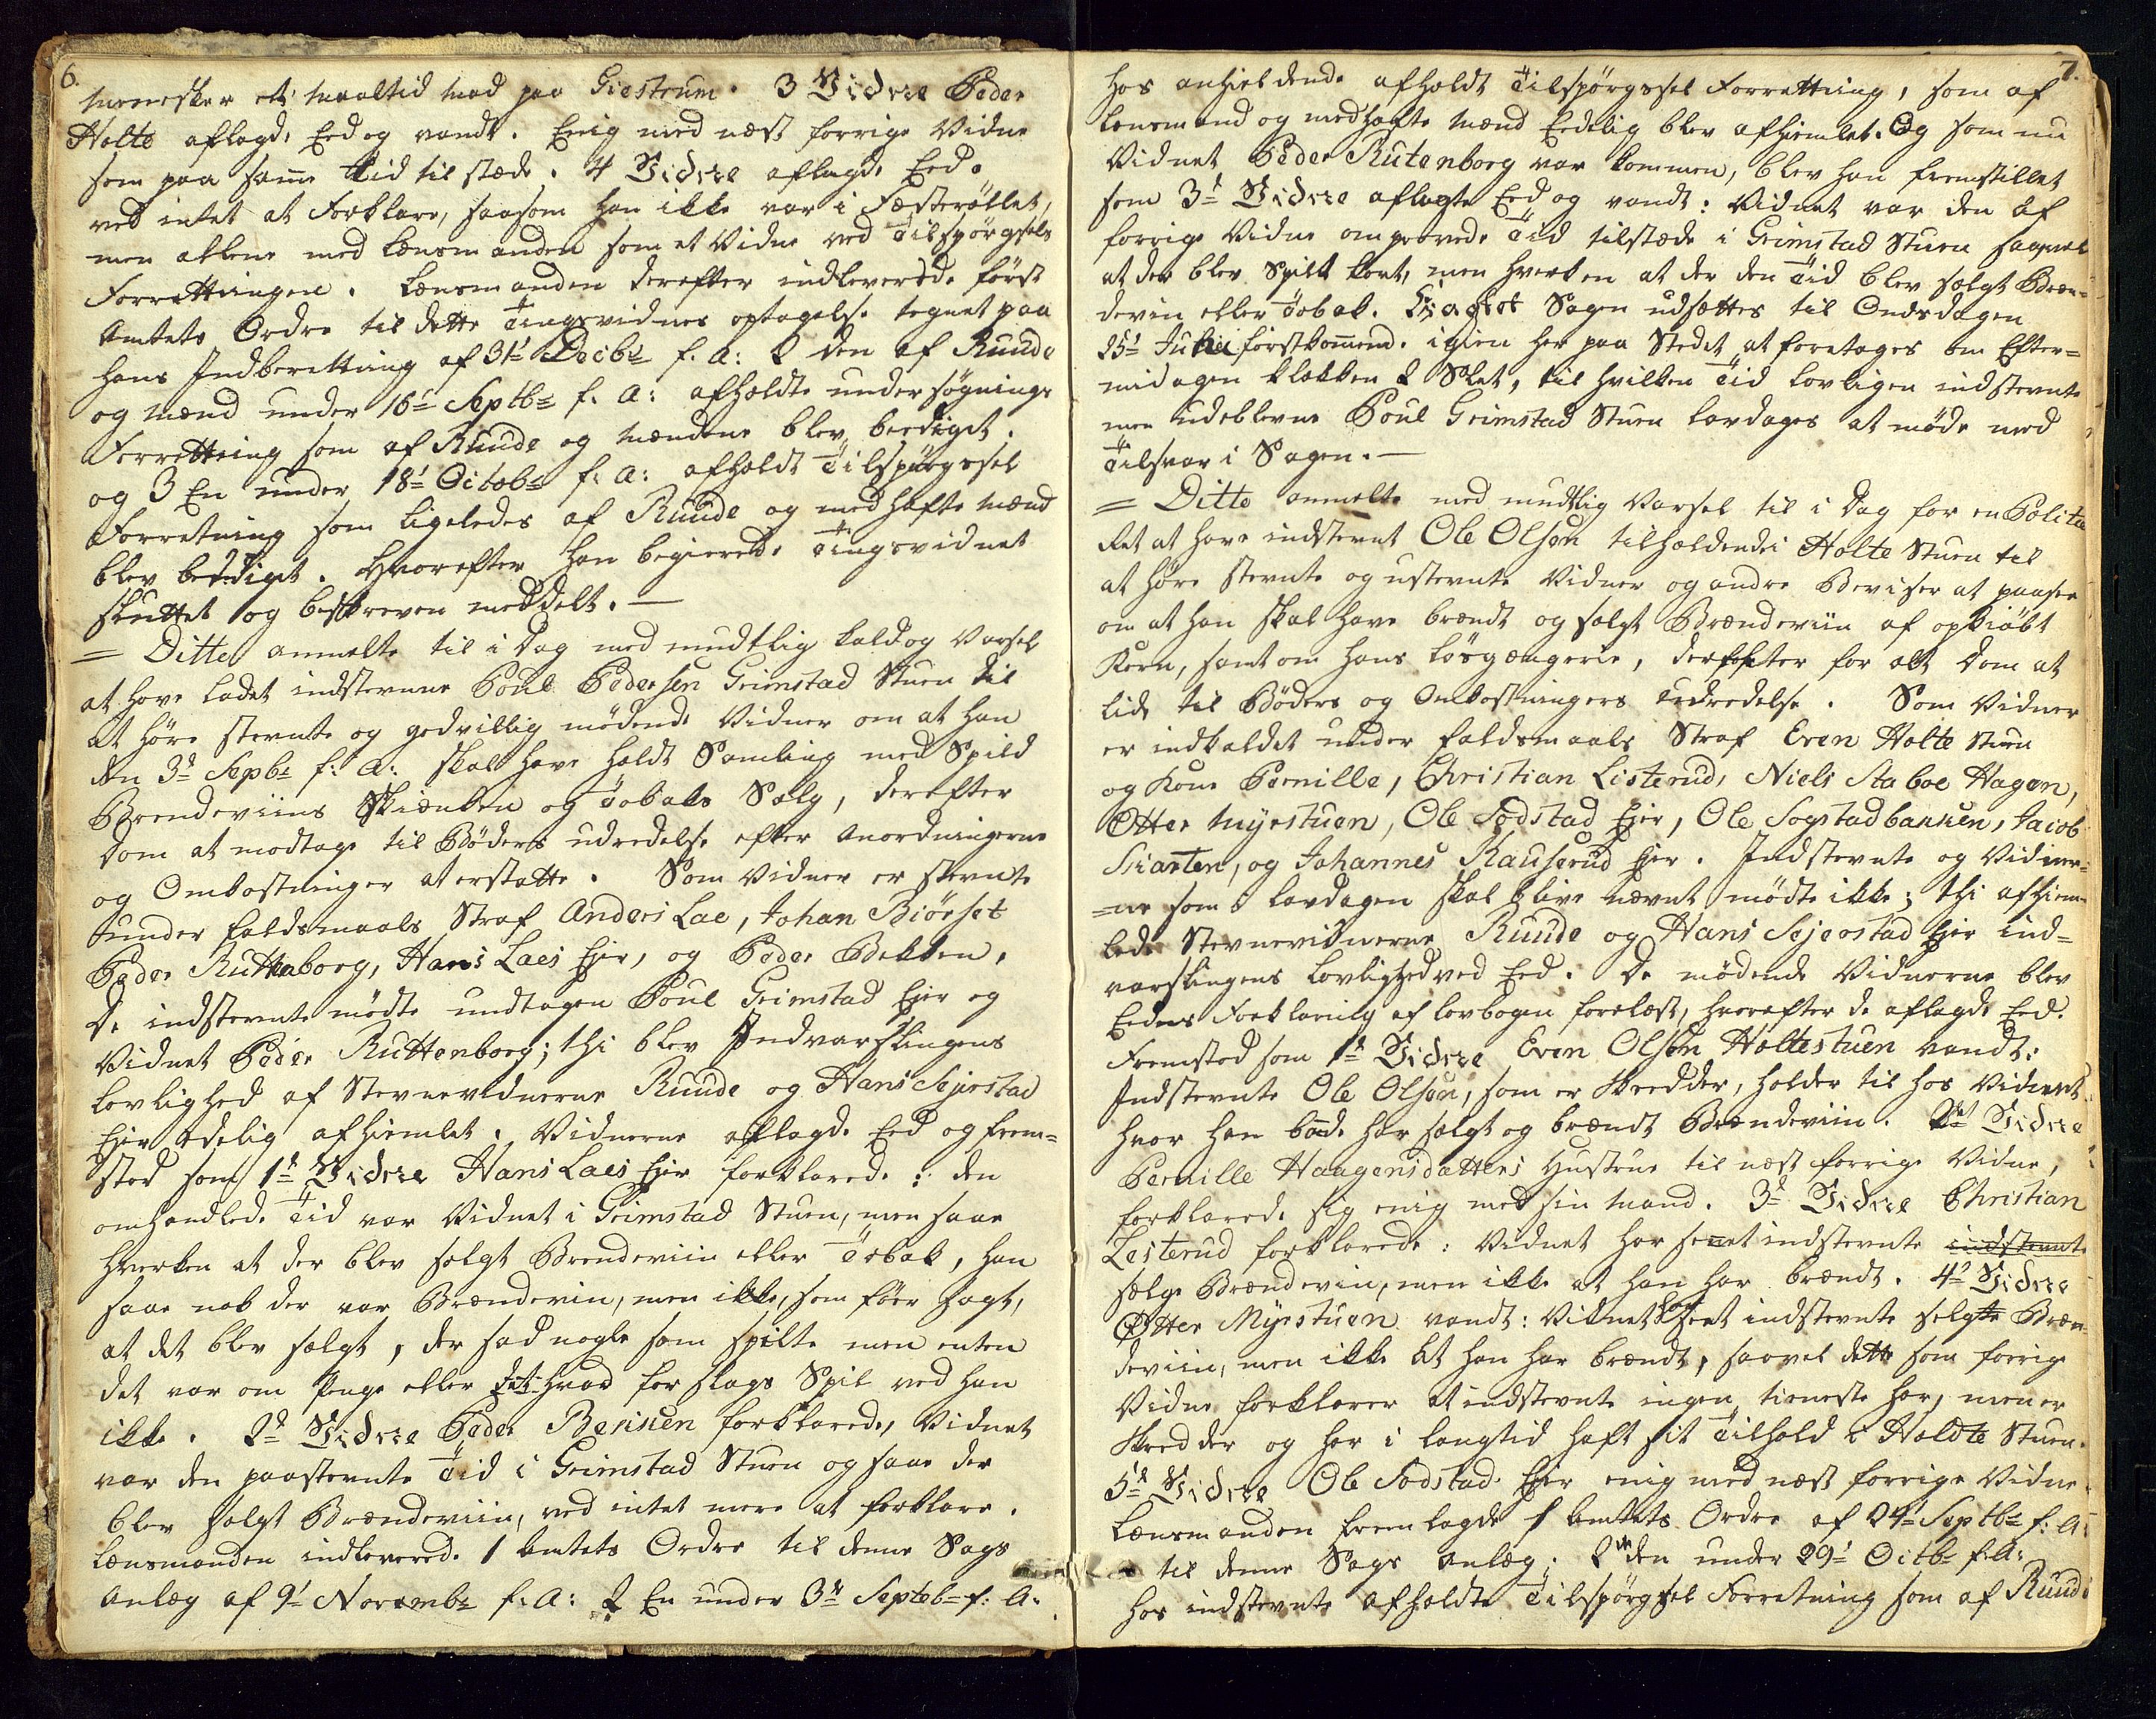 6.
Mennesker et Maaltid Mad paa Giestrum. 3 Vidne Peder
Holte aflagde Eed og vandt. Enig med næst forrige Vidne
som paa samme Tid tilstæde. 4 Vidne aflagde Eed.
ved intet at Forklare, saasom han ikke var i Fæsterøllet,
men allene med Lænsmanden som et Vidne ved Tilspørgsels
Forrettningen. Lænsmanden derefter indleverede først
Amtets Ordre til dette Tingsvidnes optagelse tegnet paa
hans Indberettning af 31t Decbr f: A: 2 den af Ruude
og Mænd under 16de Septbr f: A: afholdte undersøgnings
Forrettning som af Ruude og Mændene blev beediget.
og 3 En under 18de Octobr f: A: afholdt Tilspørgssel
Forretning som ligeledes af Ruude og medhafte Mænd
blev beediget. Hvorefter han begierede Tingsvidnet
sluttet og beskreven meddelt. —
= Ditto anmelte til i Dag med mundtlig Kald og Varsel
at have ladet indstevne Poul Pedersen Grimstad Stuen til
at høre stevnte og godvillig mødende Vidner om at han
den 3de Sepbr f: A: skal have holdt Samling med Spild
Brendeviins Skiænken og Tobaks Salg, derefter
Dom at modtage til Bøders udredelse efter Anordningerne
og Omkostninger at erstatte. Som Vidner er stevnte
under Faldsmaals Straf Anders Lae, Johan Biørset
Peder Ruttenborg, Hans Laes Ejer, og Peder Bekken.
De indstevnte mødte undtagen Poul Grimstad Ejer og
Vidnet Peder Ruttenborg; thi blev Indvarslingens
Lovlighed af Stevnevidnerne Ruude og Hans Sejerstad
Ejer Edelig afhiemlet. Vidnerne aflagde Eed og frem=
stod som 1te Vidne Hans Laes Ejer forklarede: den
omhandlede Tid var Vidnet i Grimstad Stuen, men saae
hverken at der blev solgt Brendeviin eller Tobak, han
saae nok der var Brændeviin, men ikke, som før sagt,
at det blev solgt, der sad nogle som spilte men enten
det var om Penge eller hvad for slags Spil ved han
ikke. 2de Vidne Peder Bekken forklarede, Vidnet
var den paastevnte Tid i Grimstad Stuen og saae der
blev solgt Brændeviin, ved intet mere at forklare.
Lænsmanden indleverede 1 Amtets Ordre til denne Sags
Anlæg af 9de Novembr f: A: 2 En under 3de Septbr f: A:
7.
hos anhieldende afholdt Tilspørgssel Forrettning, som af
Lensmand og medhafte Mænd Eedelig blev afhiemlet. Og som nu
Vidnet Peder Rutenborg var kommen, blev han fremstillet
som 3de Vidne aflagte Eed og vandt: Vidnet var den af
forrige Vidne omprovede Tid tilstæde i Grimstad Stuen saavel
at der blev Spilt Kort, men hverken at der den Tid blev solgt Bræn=
deviin eller Tobak. Eragtet Sagen udsættes til Onsdagen
25de Julii førstkommende igien her paa Stedet at foretages om Efter=
midagen klokken 2 Slet, til hvilken Tid lovligen indstevnte
men udeblevne Poul Grimstad Stuen lavdages at møde med
Tilsvar i Sagen. —
= Ditto anmelte med mundtlig Varsel til i Dag for en Politie
Ret at have indstevnt Ole Olsøn tilholdende i Holte Stuen til
at høre stevnte og ustevnte Vidner og andre Beviser at paasee
om at han skal have brændt og solgt Brændeviin af opkiøbt
Korn, samt om hans løsgængerie, derefter for alt Dom at
lide til Bøders og Omkostningers udredelse. Som Vidner
er indkaldet under Faldsmaals Straf Even Holte Stuen
og Kone Pernille, Christian Listerud, Niels Staboe Hagen,
Otter Myrstuen, Ole Sodstad Ejer, Ole Sogstadbakken, Jacob
Kiarten, og Johannes Kauserud Ejer. Indstevnte og Vidner=
=ne som i Lavdagen skal blive nævnt mødte ikke; thi afhiem=
lede Stevnevidnerne Ruude og Hans Sejerstad Ejer Ind=
varslingens Lovlighed ved Eed. De mødende Vidnerne blev
Eedens Forklaring af Lovbogen forelæst, hvorefter de aflagde Eed.
Fremstod som 1te Vidne Even Olsøn Holtestuen vandt:
Indstevnte Ole Olsøn, som er Skredder, holder til hos Vidnet
hvor han baade har solgt og brændt Brændeviin. 2det Vidne
Pernille Haagensdatters Hustrue til næst forrige Vidne,
forklarede sig enig med sin Mand. 3de Vidne Christian
Listerud forklarede: Vidnet har seet indstevnte indstevnte
sælge Brændeviin, men ikke at han har brændt. 4de Vidne
Otter Myrstuen vandt: Vidnet har seet indstevnte selgte Bræn=
deviin, men ikke at han har brændt, saavel dette som forrige
Vidne forklarer at indstevnte ingen tieneste har, men er
Skredder og har i langtid haft sit Tilhold i Holdte Stuen.
5te Vidne Ole Sodstad Ejer enig med næst forrige Vidne.
Lænsmanden fremlagde 1 Amtets Ordre af 24de Septbr f: A:
til denne Sags Anlæg. 2 den under 29de Octbr f: A:
hos indstevnte afholdte Tilspørgsel Forretning som af Ruude